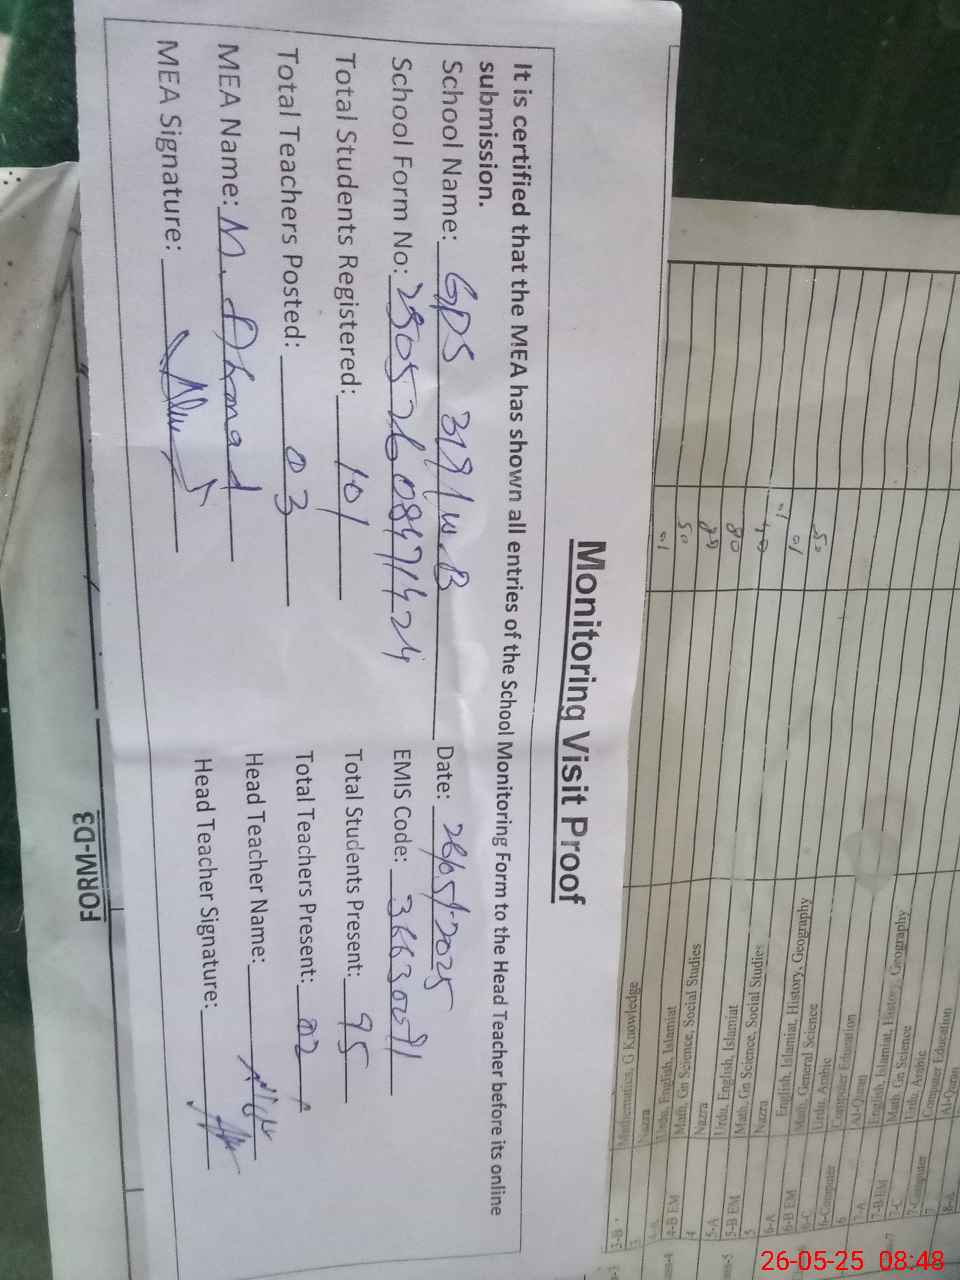 Monitoring Visit Proof
It is certified that the MEA has shown all entries of the School Monitoring Form to the Head Teacher before its online
submission.
School Name: GPS 319/W.B Date: 26/05/2025
School Form No: EMIS Code:
Total Students Registered: 101 Total Students Present: 95
Total Teachers Posted: 03 Total Teachers Present: 02
MEA Name: M. Ahmad Head Teacher Name:
MEA Signature: Head Teacher Signature:
FORM-D3
Mathematics, G Knowledge
Nazra
Urdu, English, Islamiat 4-B EM
Math, Gn Science, Social Studies 4
Nazra 5-A
Urdu, English, Islamiat 5-B EM
Math, Gn Science, Social Studies 5
Nazra 6-A
English, Islamiat, History, Geography 6-B EM
Math, General Science 6-C
Urdu, Arabic 6-Computer
Computer Education 6
Al-Quran 7-A
English, Islamiat, History, Geography 7-B EM
Math Gn Science 7-C
Urdu, Arabic 7-Computer
Computer Education 7
Al-Quran 8-A
26-05-25 08:48